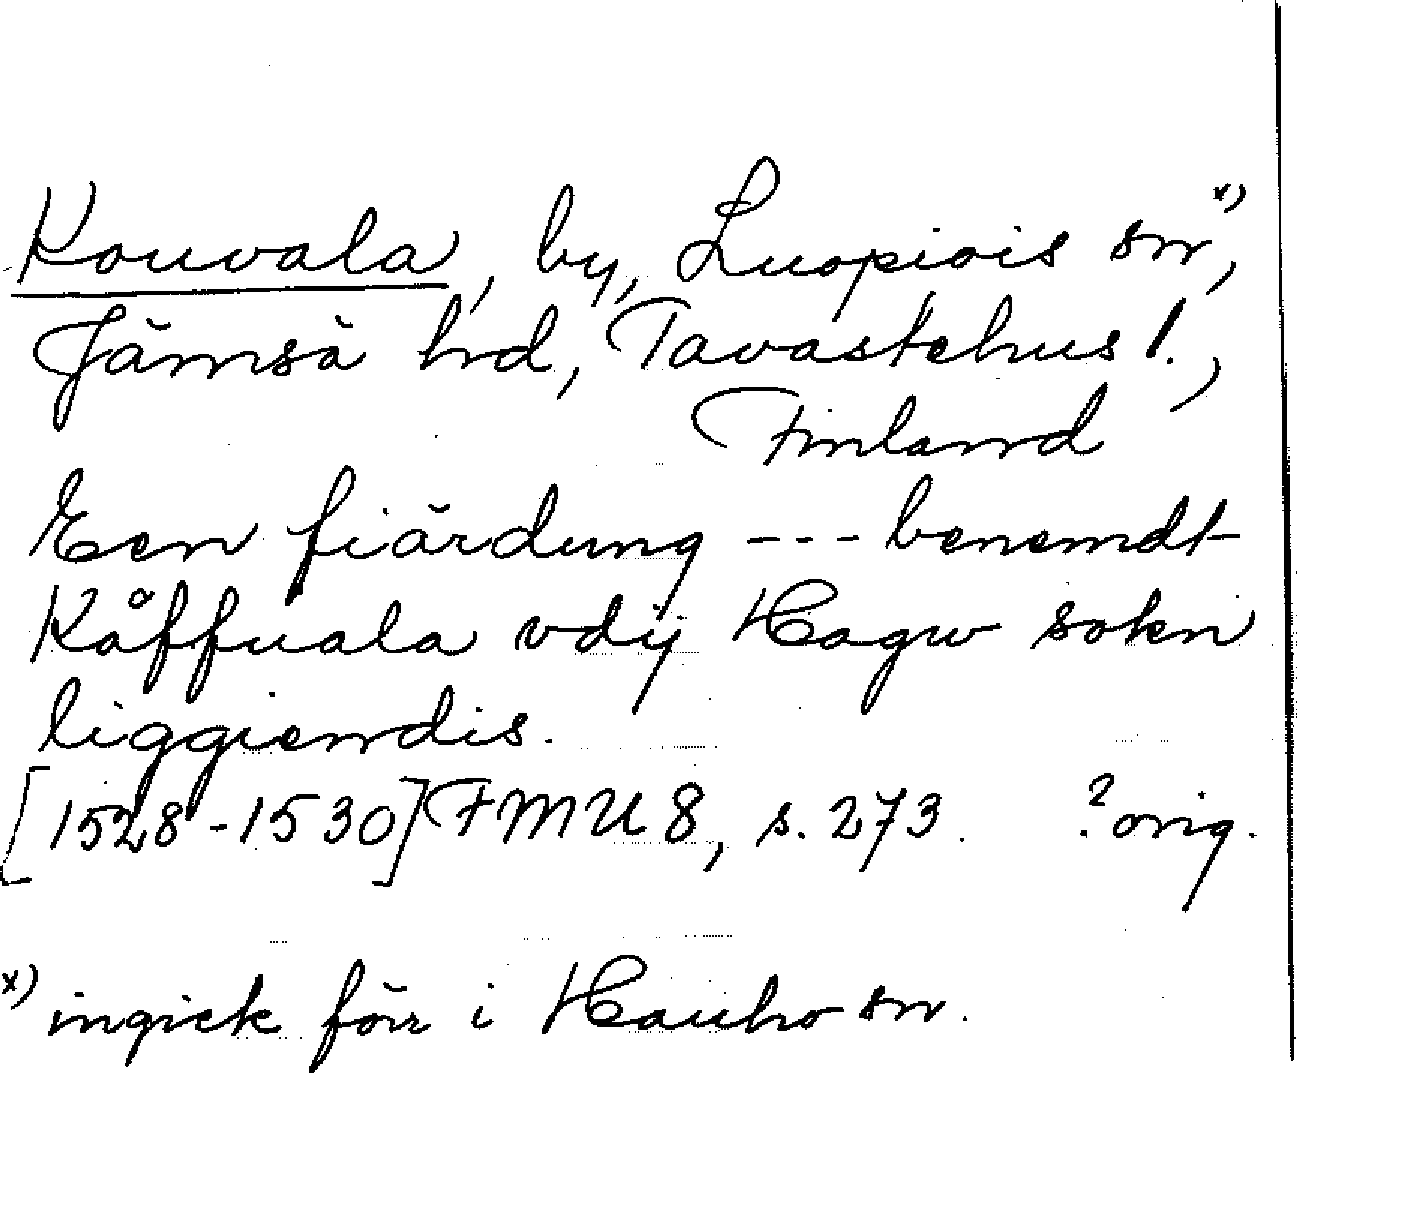 Kouvala, by, Luopiois sn x),
Jämsä hrd, Tavastehus l.,
Finland
Een fiärdung --- benemdt
Kåffuala vdÿ Hagw sokn
liggiendis.
[1528-1530] FMU 8, s. 273. ? orig.
x) ingick förr i Hauho sn.